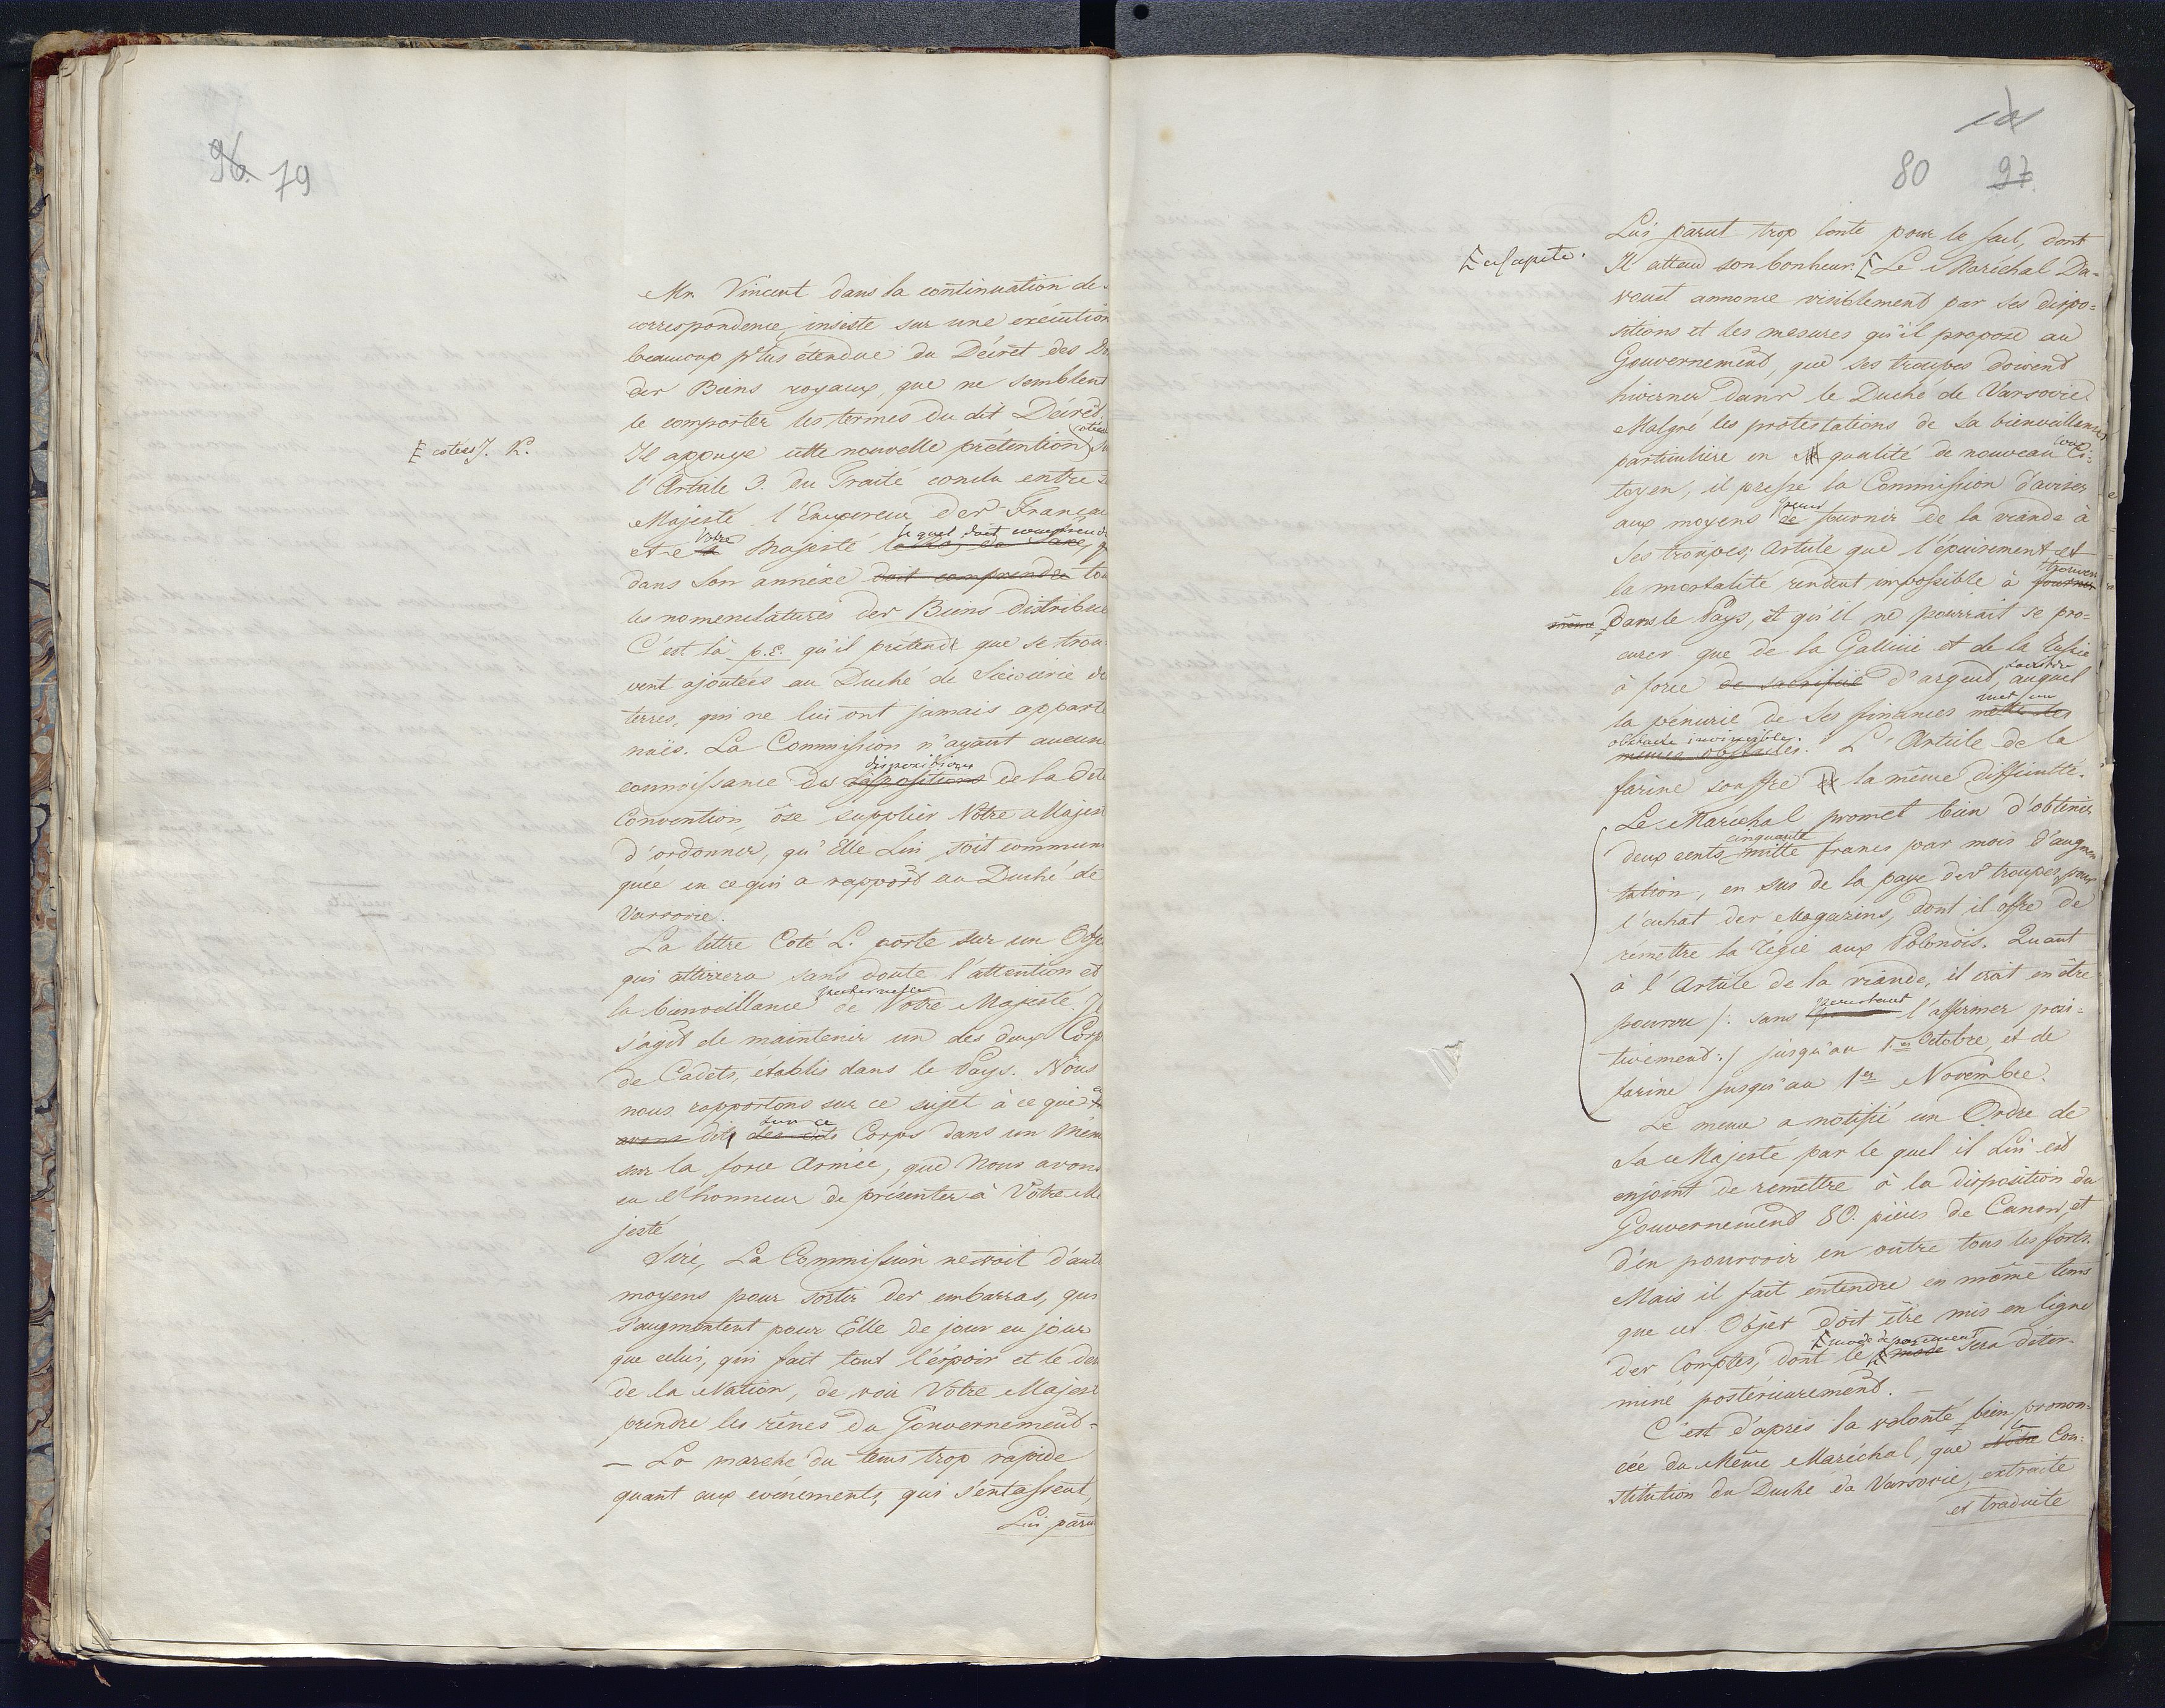 96. 79
Mr. Vincent dans la continuation de
correspondence, insiste sur une exécution
beaucoup plus étendue du Décret des
des Biens royaux, que ne semblent
le comporter les termes du dit Décret.
cotées J. K.
Il appuye cette nouvelle prétention
l'Article 3. du Traité conclu entre
Majesté l'Empereur des Français
Votre lequel doit comprendre
et Majesté
dans son annéxe doit comprendre
les nomenclatures des Biens distribue
C'est là p. E. qu'il prétend que se trou
vent ajoutées au Duché de Sievierie de
terres, qui ne lui ont jamais apparte
nuës. La Commission n'ayant aucune
dispositions
connoissance des dispositions de la dite
Convention, ôse supplier Votre Majest
d'ordonner, qu'Elle Lui soit communi
quée en ce qui a rapport au Duché de
Varsovie.
La lettre Coté L. porte sur un Obje
qui attirera sans doute l'attention et
paternelle
la bienveillance de Votre Majesté. Il
s'agit de maintenir un des deux Corp
de Cadets, établis dans le Pays. Nous
nous rapportons sur ce sujet à ce que
sur ce
avons dit des dits Corps dans un Mém
sur la force Armée, que Nous avons
eu l'honneur de présenter à Votre Ma
jesté
Sire, La Commission ne voit d'autr
moyens pour sortir des embarras, qui
s'augmentent pour Elle de jour en jour
que celui, qui fait tout l'espoir et le
de la Nation, de voir Votre Majest
prendre les rênes du Gouvernement
— La marche du tems trop rapide
quant aux evénements, qui s'entassent,
Lui paru
80 97.
Lui parut trop lente pour le seul, dont
a capite.
Il attend son bonheur. Le Maréchal Da-
voust annonce visiblement par ses dispo=
sitions et les mesures qu'il propose au
Gouvernement, que ses troupes doivent
hiverner dans le Duché de Varsovie.
Malgré les protestations de sa bienveillance
particulière en qualité de nouveau Ci=
toyen, il presse la Commission d'aviser
pour
aux moyens de fournir de la viande à
ses troupes; Article que l'épuisement et
trouver
la mortalité rendent impossible à fournir
même dans le Pays, et qu'il ne pourrait se pro=
curer que de la Gallicie et de la Russie
à force de sacrifice d'argent, auquel
met un
la pénurie de ses finances mette des
obstacle invincible.
mêmes obstacles. L'Article de la
farine souffre la même difficulté.
Le Maréchal promet bien d'obtenir
cinquante
deux cents mille francs par mois d'augmen
tation, en sus de la paye des troupes, pour
l'achat des Magazins, dont il offre de
remettre la régie aux Polonois. Quant
à l'Article de la viande, il croit en être
pourtant
pourvu /: sans l'affirmer posi=
tivement :/ jusqu'au 1er Octobre, et de
farine jusqu'au 1er Novembre.
Le meme a notifié un Ordre de
Sa Majesté par le quel il Lui est
enjoint de remettre à la disposition du
Gouvernement 80. pièces de Canon, et
d'en pourvoir en outre tous les forts.
Mais il fait entendre en même tems
que cet Objet doit être mis en ligne
mode de payement
des Comptes, dont le mode sera déter-
miné postérieurement. —
C'est d'après la volonté bien pronon=
la
cée du Même Maréchal, que Notre Con=
stitution du Duché de Varsovie, extraite
et traduite